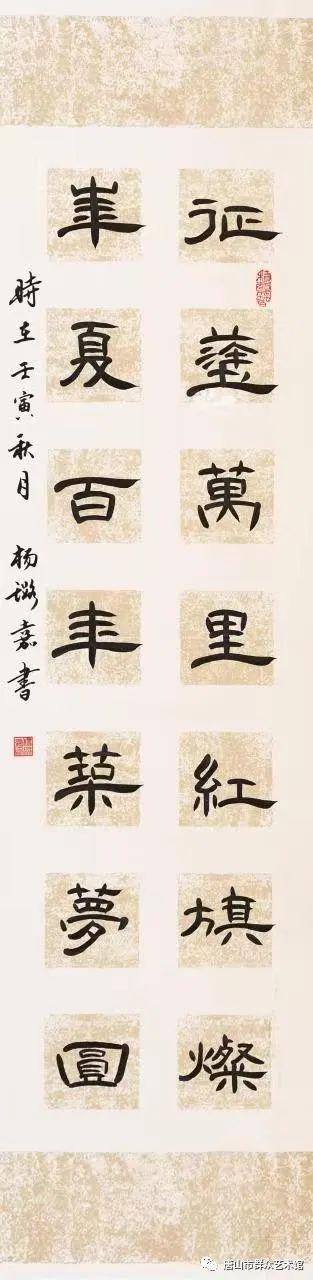 征塗萬里紅旗燦
華夏百年築夢圓
時在壬寅秋月 杨璐嘉書
唐山市群众艺术馆